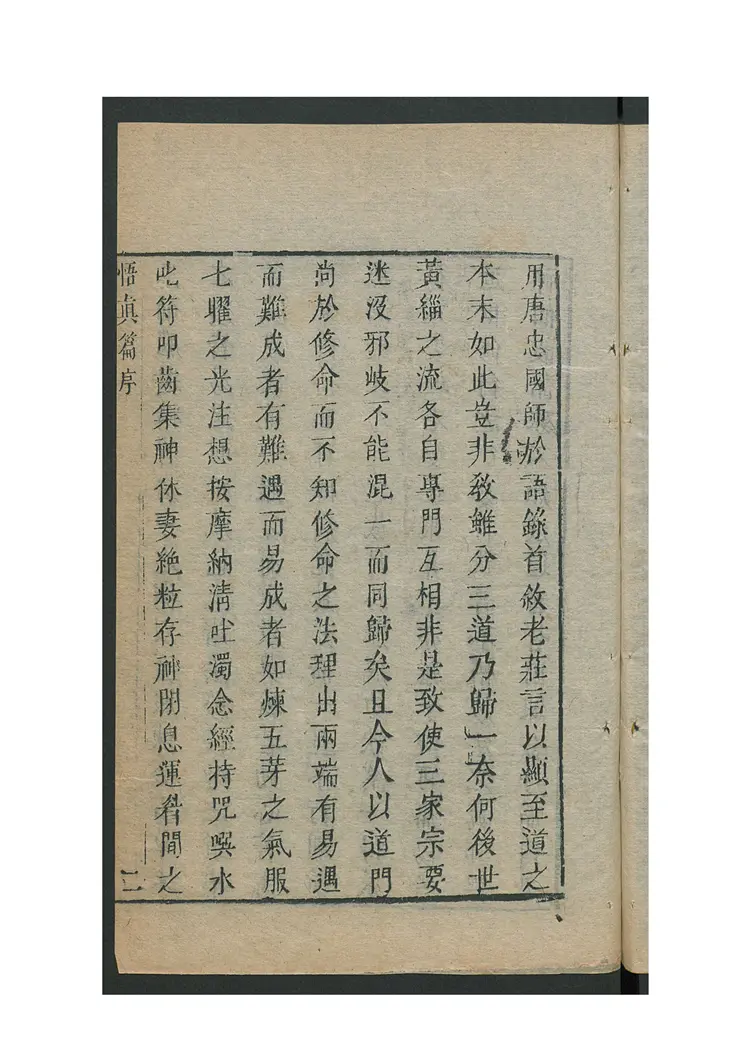 用唐忠國師於語錄首敘老莊言以顯至道之
本末如此豈非教雖分三道乃歸一奈何後世
黃緇之流各自專門互相非是致使三家宗要
迷沒邪岐不能混一而同歸矣且今人以道門
尚於修命而不知修命之法理出兩端有易遇
而難成者有難遇而易成者如煉五芽之氣服
七曜之光注想按摩納清吐濁念經持咒噀水
叱符叩齒集神休妻絶粒存神閉息運眉間之
悟真篇序
二